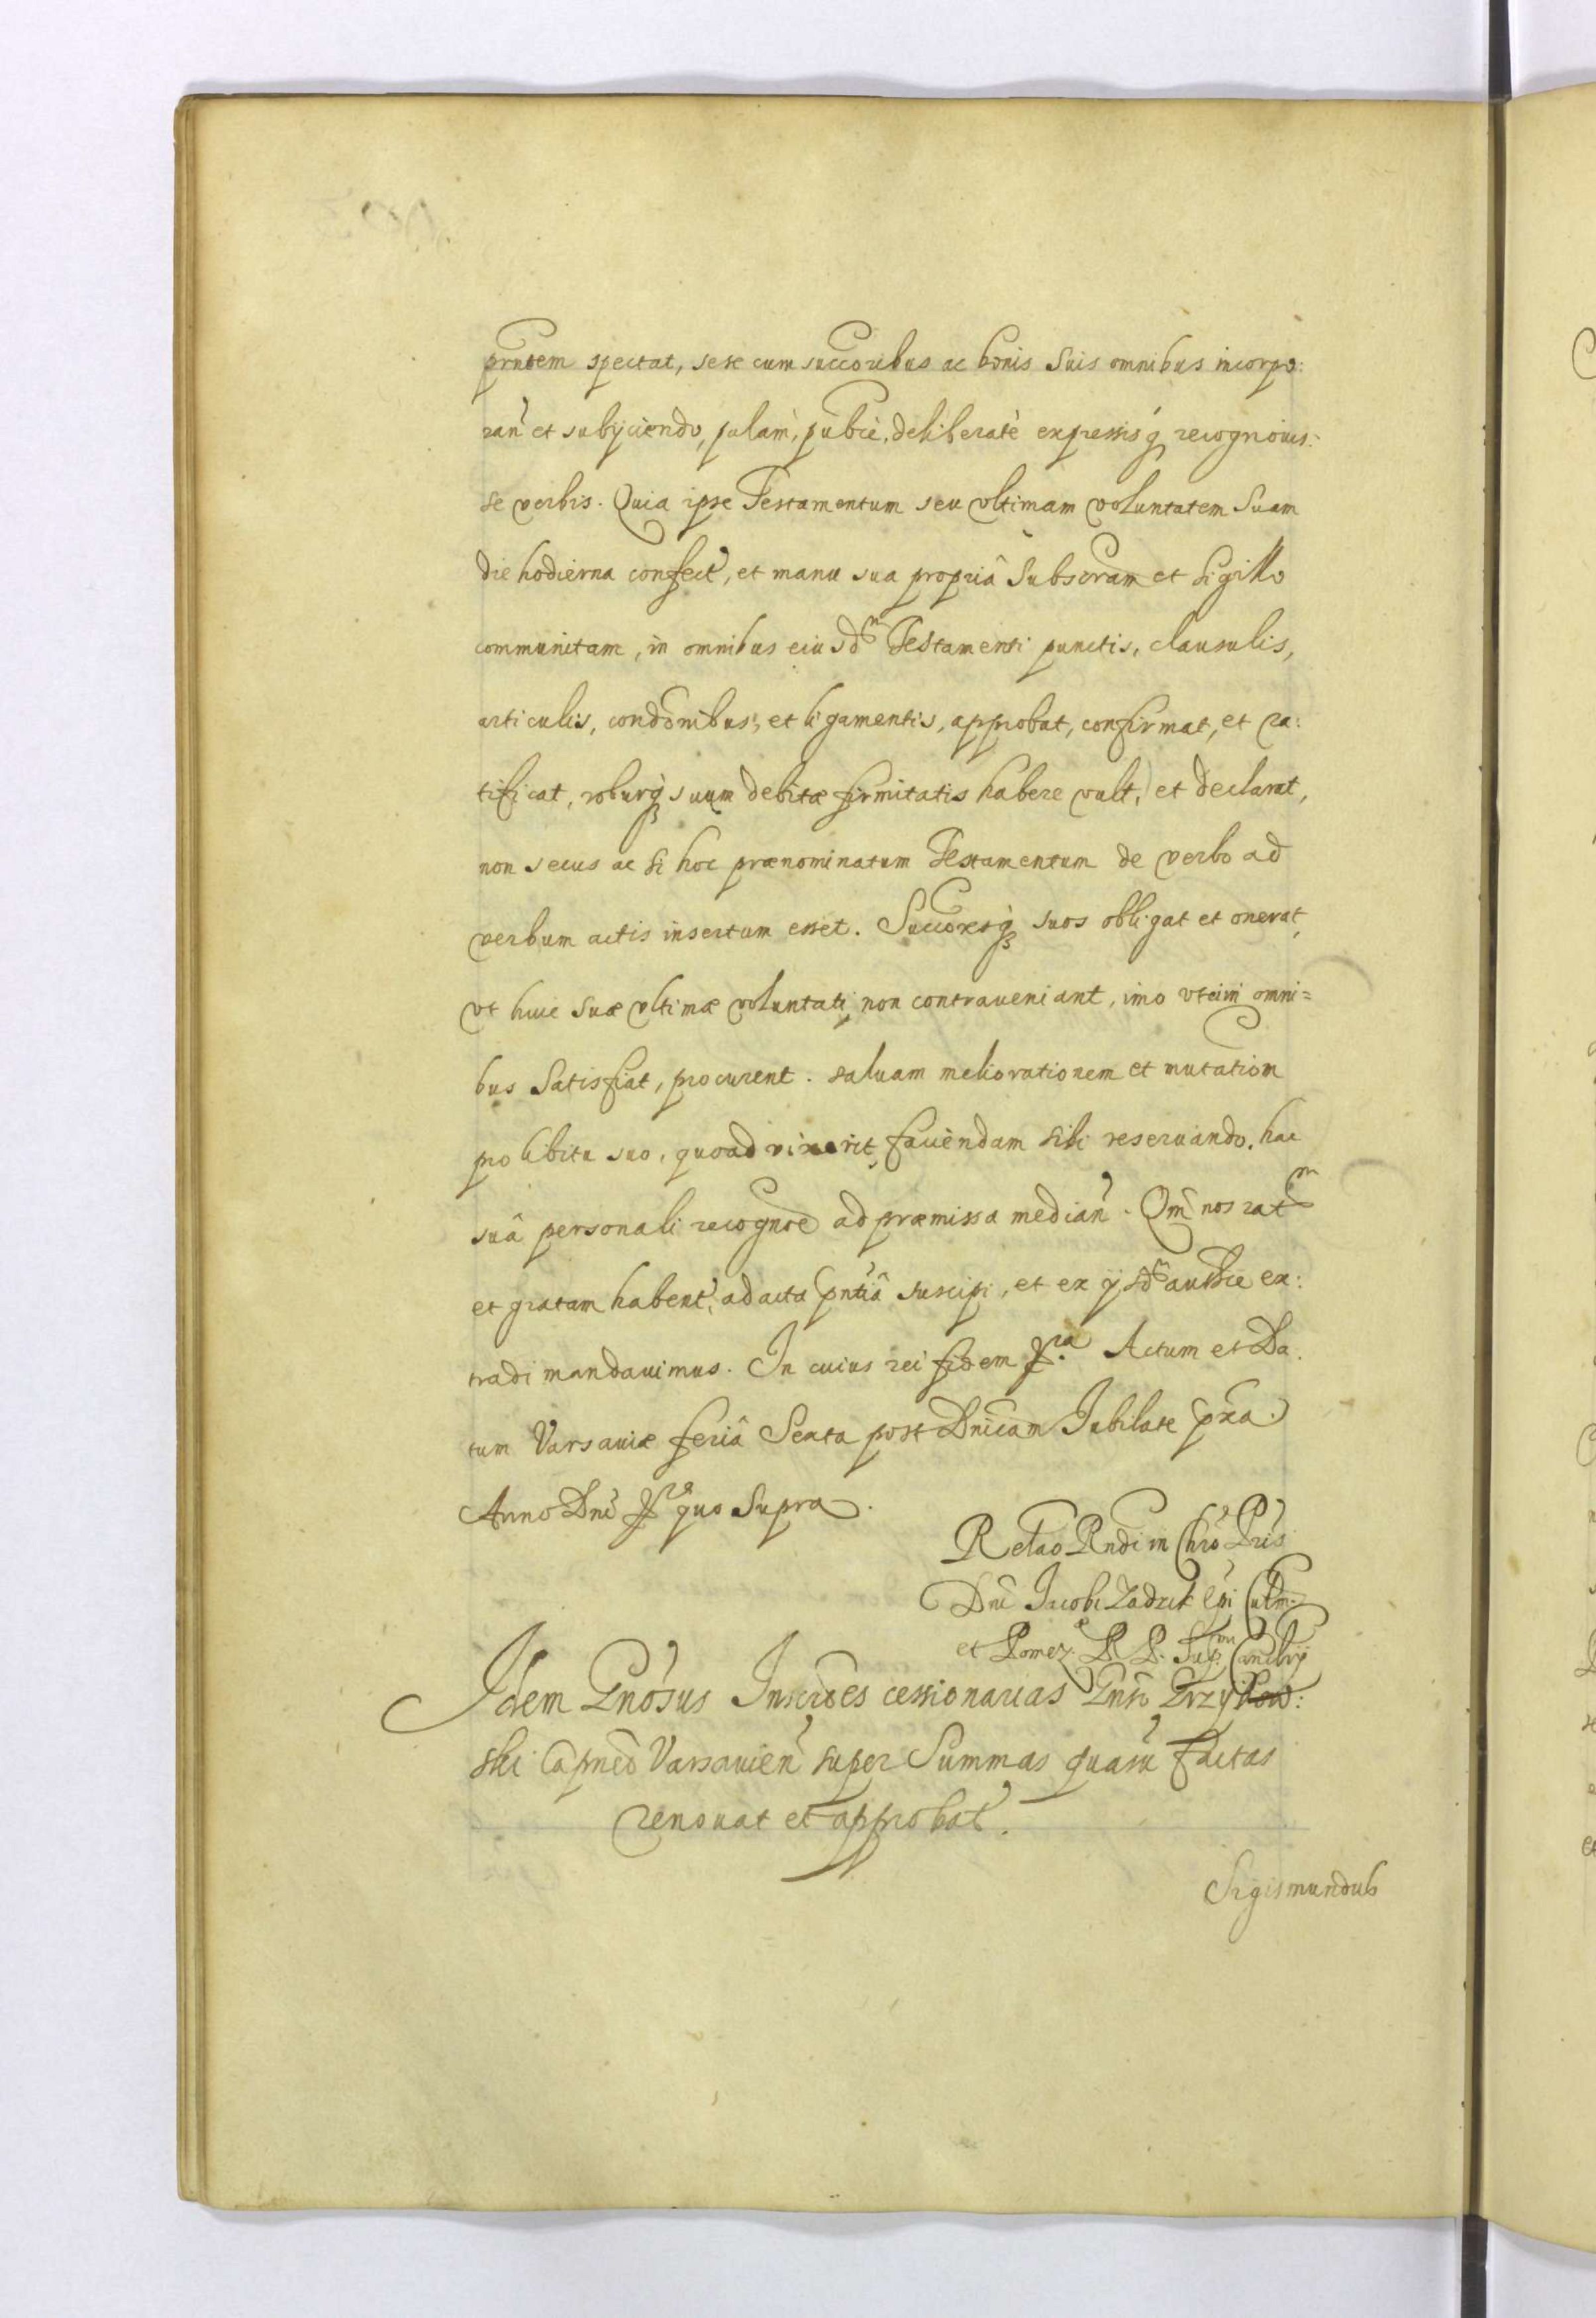 prntem spectat, sese cum succoribus ac bonis Suis omnibus incorpo:
ran et subÿciendo, palam, publice, deliberatè expressisq recognouis:
se verbis. Quia ipse Testamentum seu vltimam voluntatem Suam
die hodierna confect, et manu sua propriâ Subscram et Sigillo
communitam, in omnibus eiusdm Testamenti punctis, clausulis,
articulis, condōnibus, et ligamentis, approbat, confirmat, et ra:
tificat, roburq suum debitæ firmitatis habere vult, et declarat,
non secus ac Si hoc prænominatum Testamentum de verbo ad
verbum actis insertum esset. Succoresq suos obligat et onerat,
vt huic Suæ vltimæ voluntati non contraueniant, imo vt eim omni=
bus Satisfiat, procurent. saluam meliorationem et mutation
pro libitu suo, quoad vixerit, faciendam sibi reseruando. hac
suâ personali recognoe ad præmissa median. Qm nos ratm
et gratam habent, ad acta pntia suscipi, et ex ÿsdm authce ex:
tradi mandauimus. In cuius rei fidem pra Actum et Da
tum Varsauiæ feriâ Sexta post Dnicam Jubilate pxa.
Anno Dni pra quo Supra.
Relao Rndi in Chro Pris
Dni Jacobi Zadzik Epi Culm.
et Pomez. R P. Supm Cancellrÿ
Idem Gnosus Inscroes cessionarias Gnsi Grzybow:
ski Capneo Varsauien super Summas quasu factas
renouat et approbat.
Sigismundus